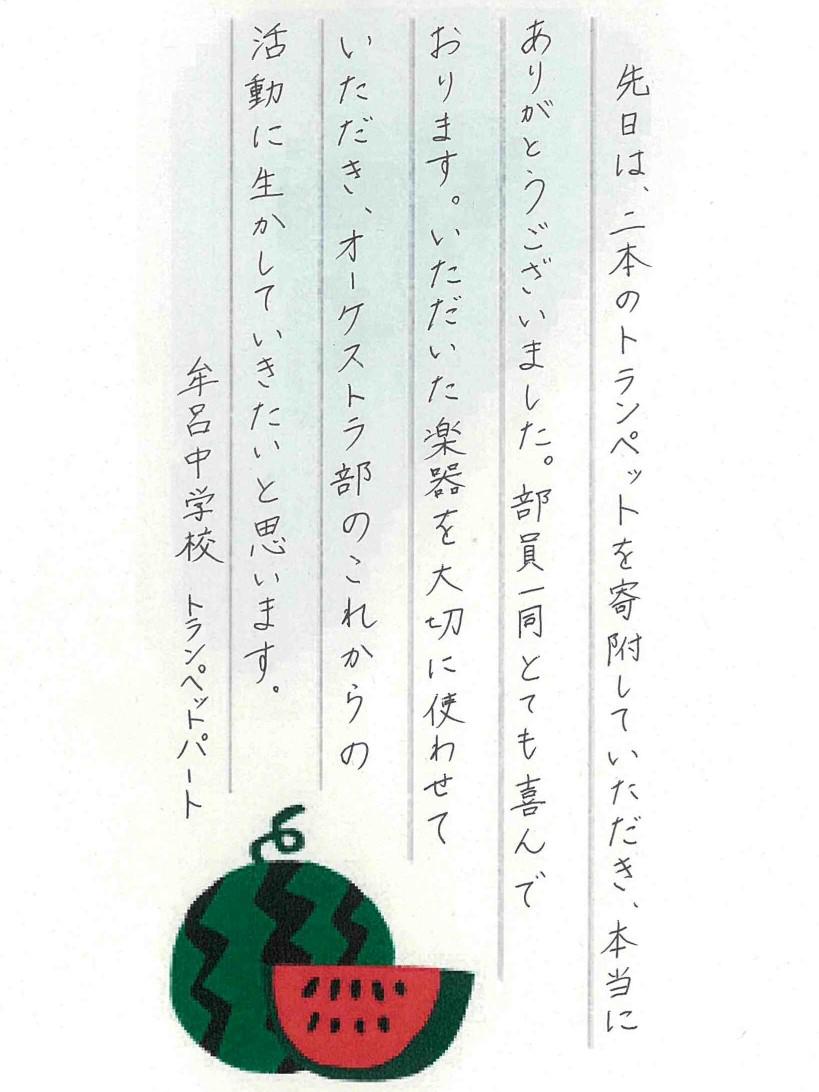 先日は、二本のトランペットを寄附していただき、本当に
ありがとうございました。部員一同とても喜んで
おります。いただいた楽器を大切に使わせて
いただき、オーケストラ部のこれからの
活動に生かしていきたいと思います。
牟呂中学校 トランペットパート